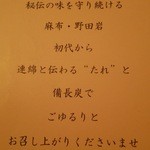 秘伝の味を守り続ける
麻布・野田岩
初代から
連綿と伝わる“たれ”と
備長炭で
ごゆるりと
お召し上がりくださいませ